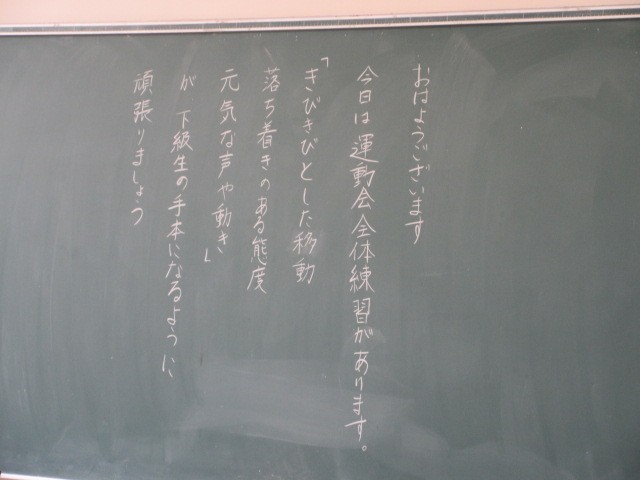 おはようございます
今日は運動会全体練習があります。
「きびきびとした移動
落ち着きのある態度
元気な声や動き」
が、下級生の手本になるように、
頑張りましょう